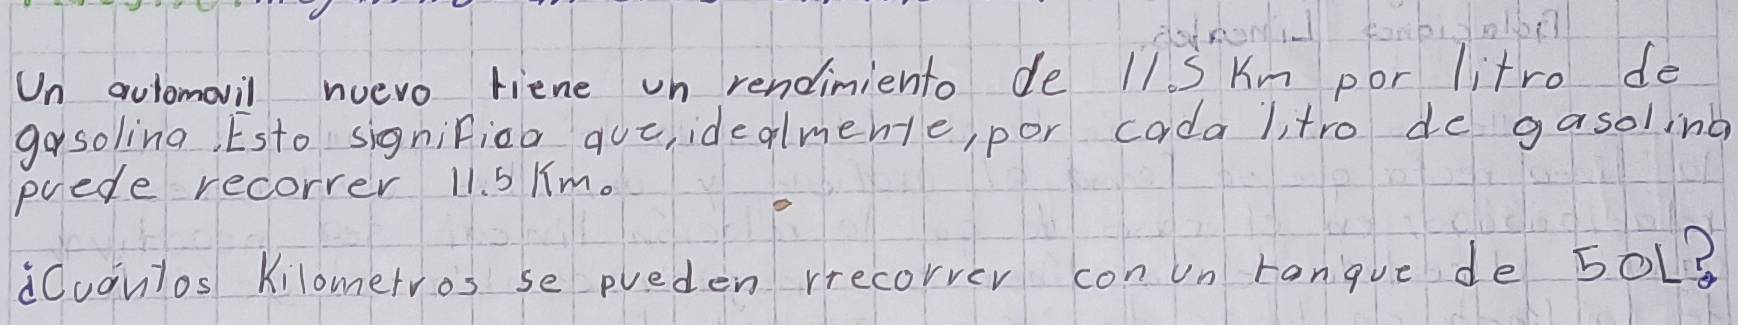 Un automovil nuevo tiene un rendimiento de 11.5 Km por litro de
gasolina. Esto significa que, idealmente, por cada litro de gasolina
puede recorrer 11.5 Km.
¿Cuántos Kilometros se pueden rrecorrer con un tanque de 50L?